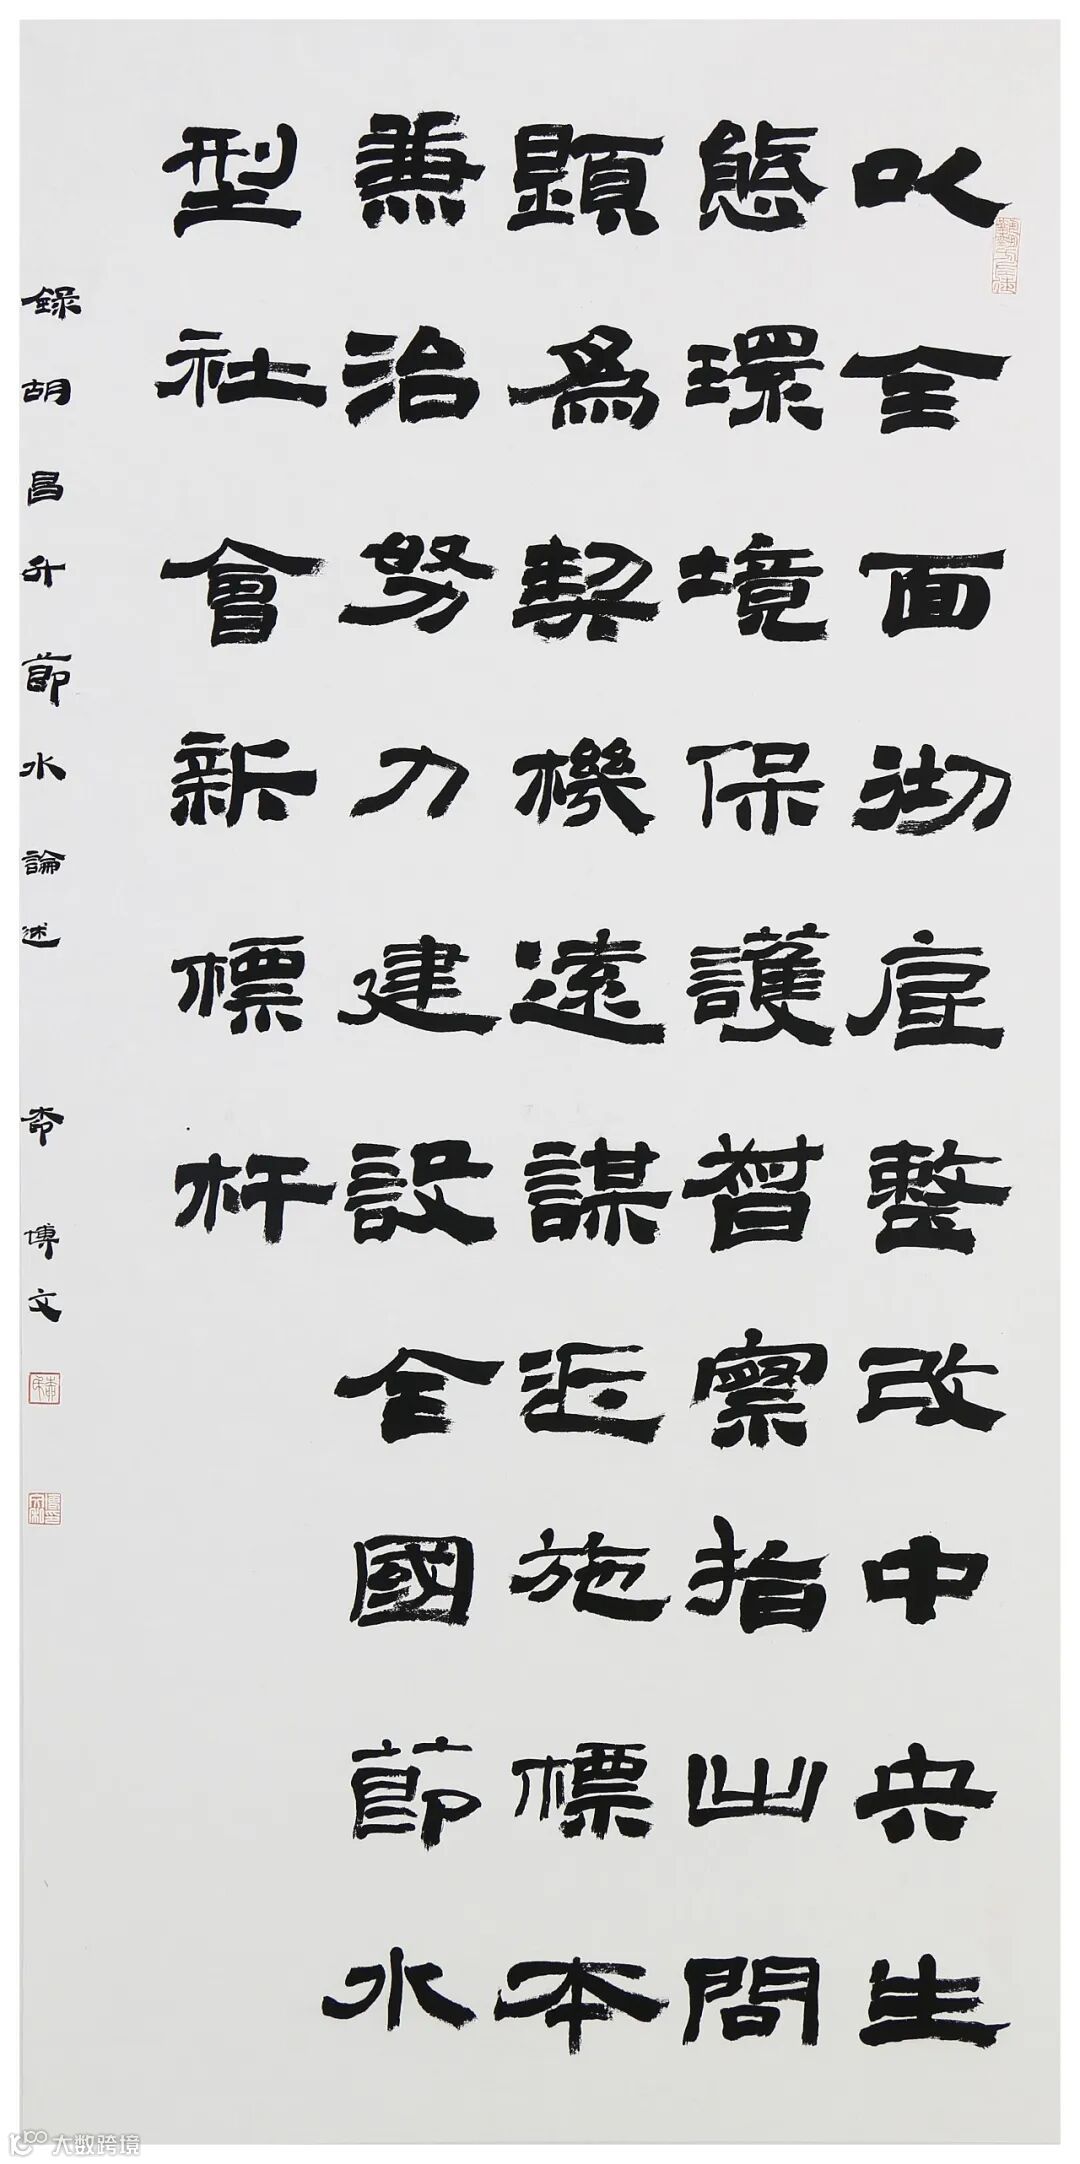 以全面彻底整改中央生
態環境保護督察指出問
題爲契機遠謀近施標本
兼治努力建設全國節水
型社會新標杆
錄胡昌升節水論述 博文
大数跨境